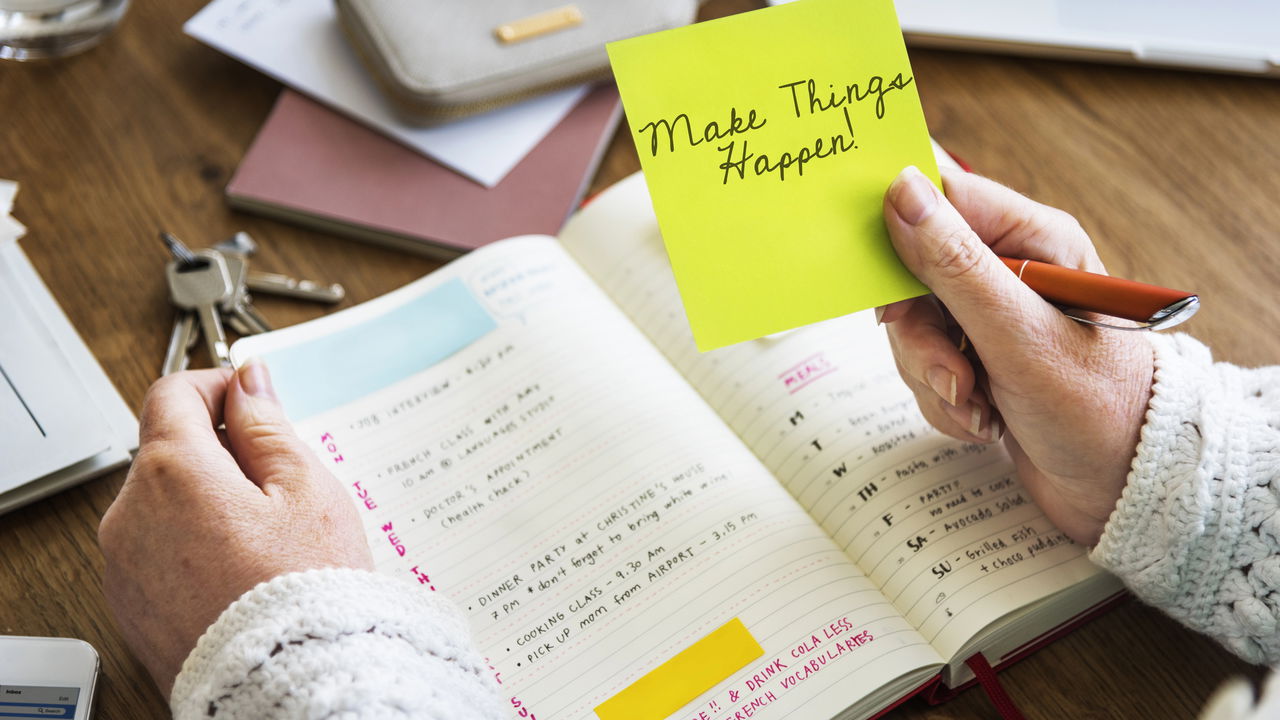 Make Things
Happen!
• JOB INTERVIEW - 4:30 pm
MON
• FRENCH CLASS WITH AMY
10 am @ LANGUAGES STUDIO
TUE
• DOCTOR'S APPOINTMENT
(health check)
WED
TH
• DINNER PARTY at CHRISTINE'S HOUSE
7 pm * don't forget to bring white wine!
• COOKING CLASS - 9.30 AM
• PICK UP mom from AIRPORT - 3.15 pm
SU
!! & DRINK COLA LESS
FRENCH VOCABULARIES
MEALS
M -
T -
W - Roasted
TH - Pasta with
F - PARTY!!
no need to cook
SA - Avocado salad
SU - Grilled fish
+ choco pudding
Inbox
Edit
Search